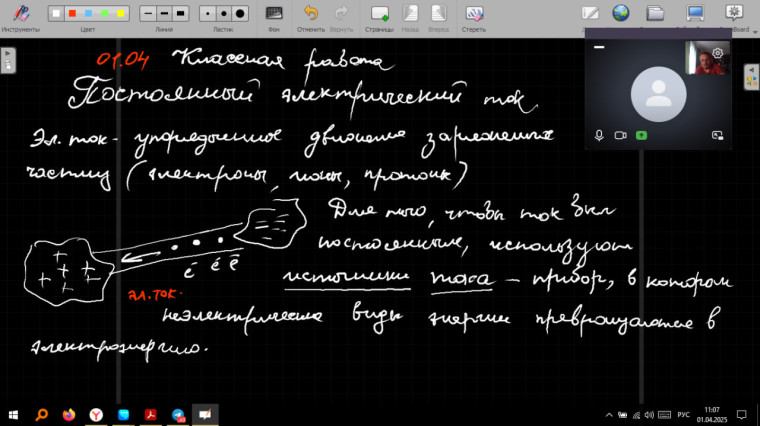 Инструменты
Цвет
Линии
Ластик
Фон
Отменить
Вернуть
Страницы
Назад
Вперед
Стереть
01.04 Классная работа
Постоянный электрический ток
Эл. ток - упорядоченное движение заряженных
частиц (электроны, ионы, протоны)
Для того, чтобы ток был
постоянным, используют
источники тока – прибор, в котором
неэлектрические виды энергии превращаются в
электроэнергию.
+ + + + + +
ē ē ē
эл. ток.
РУС
11:07
01.04.2025